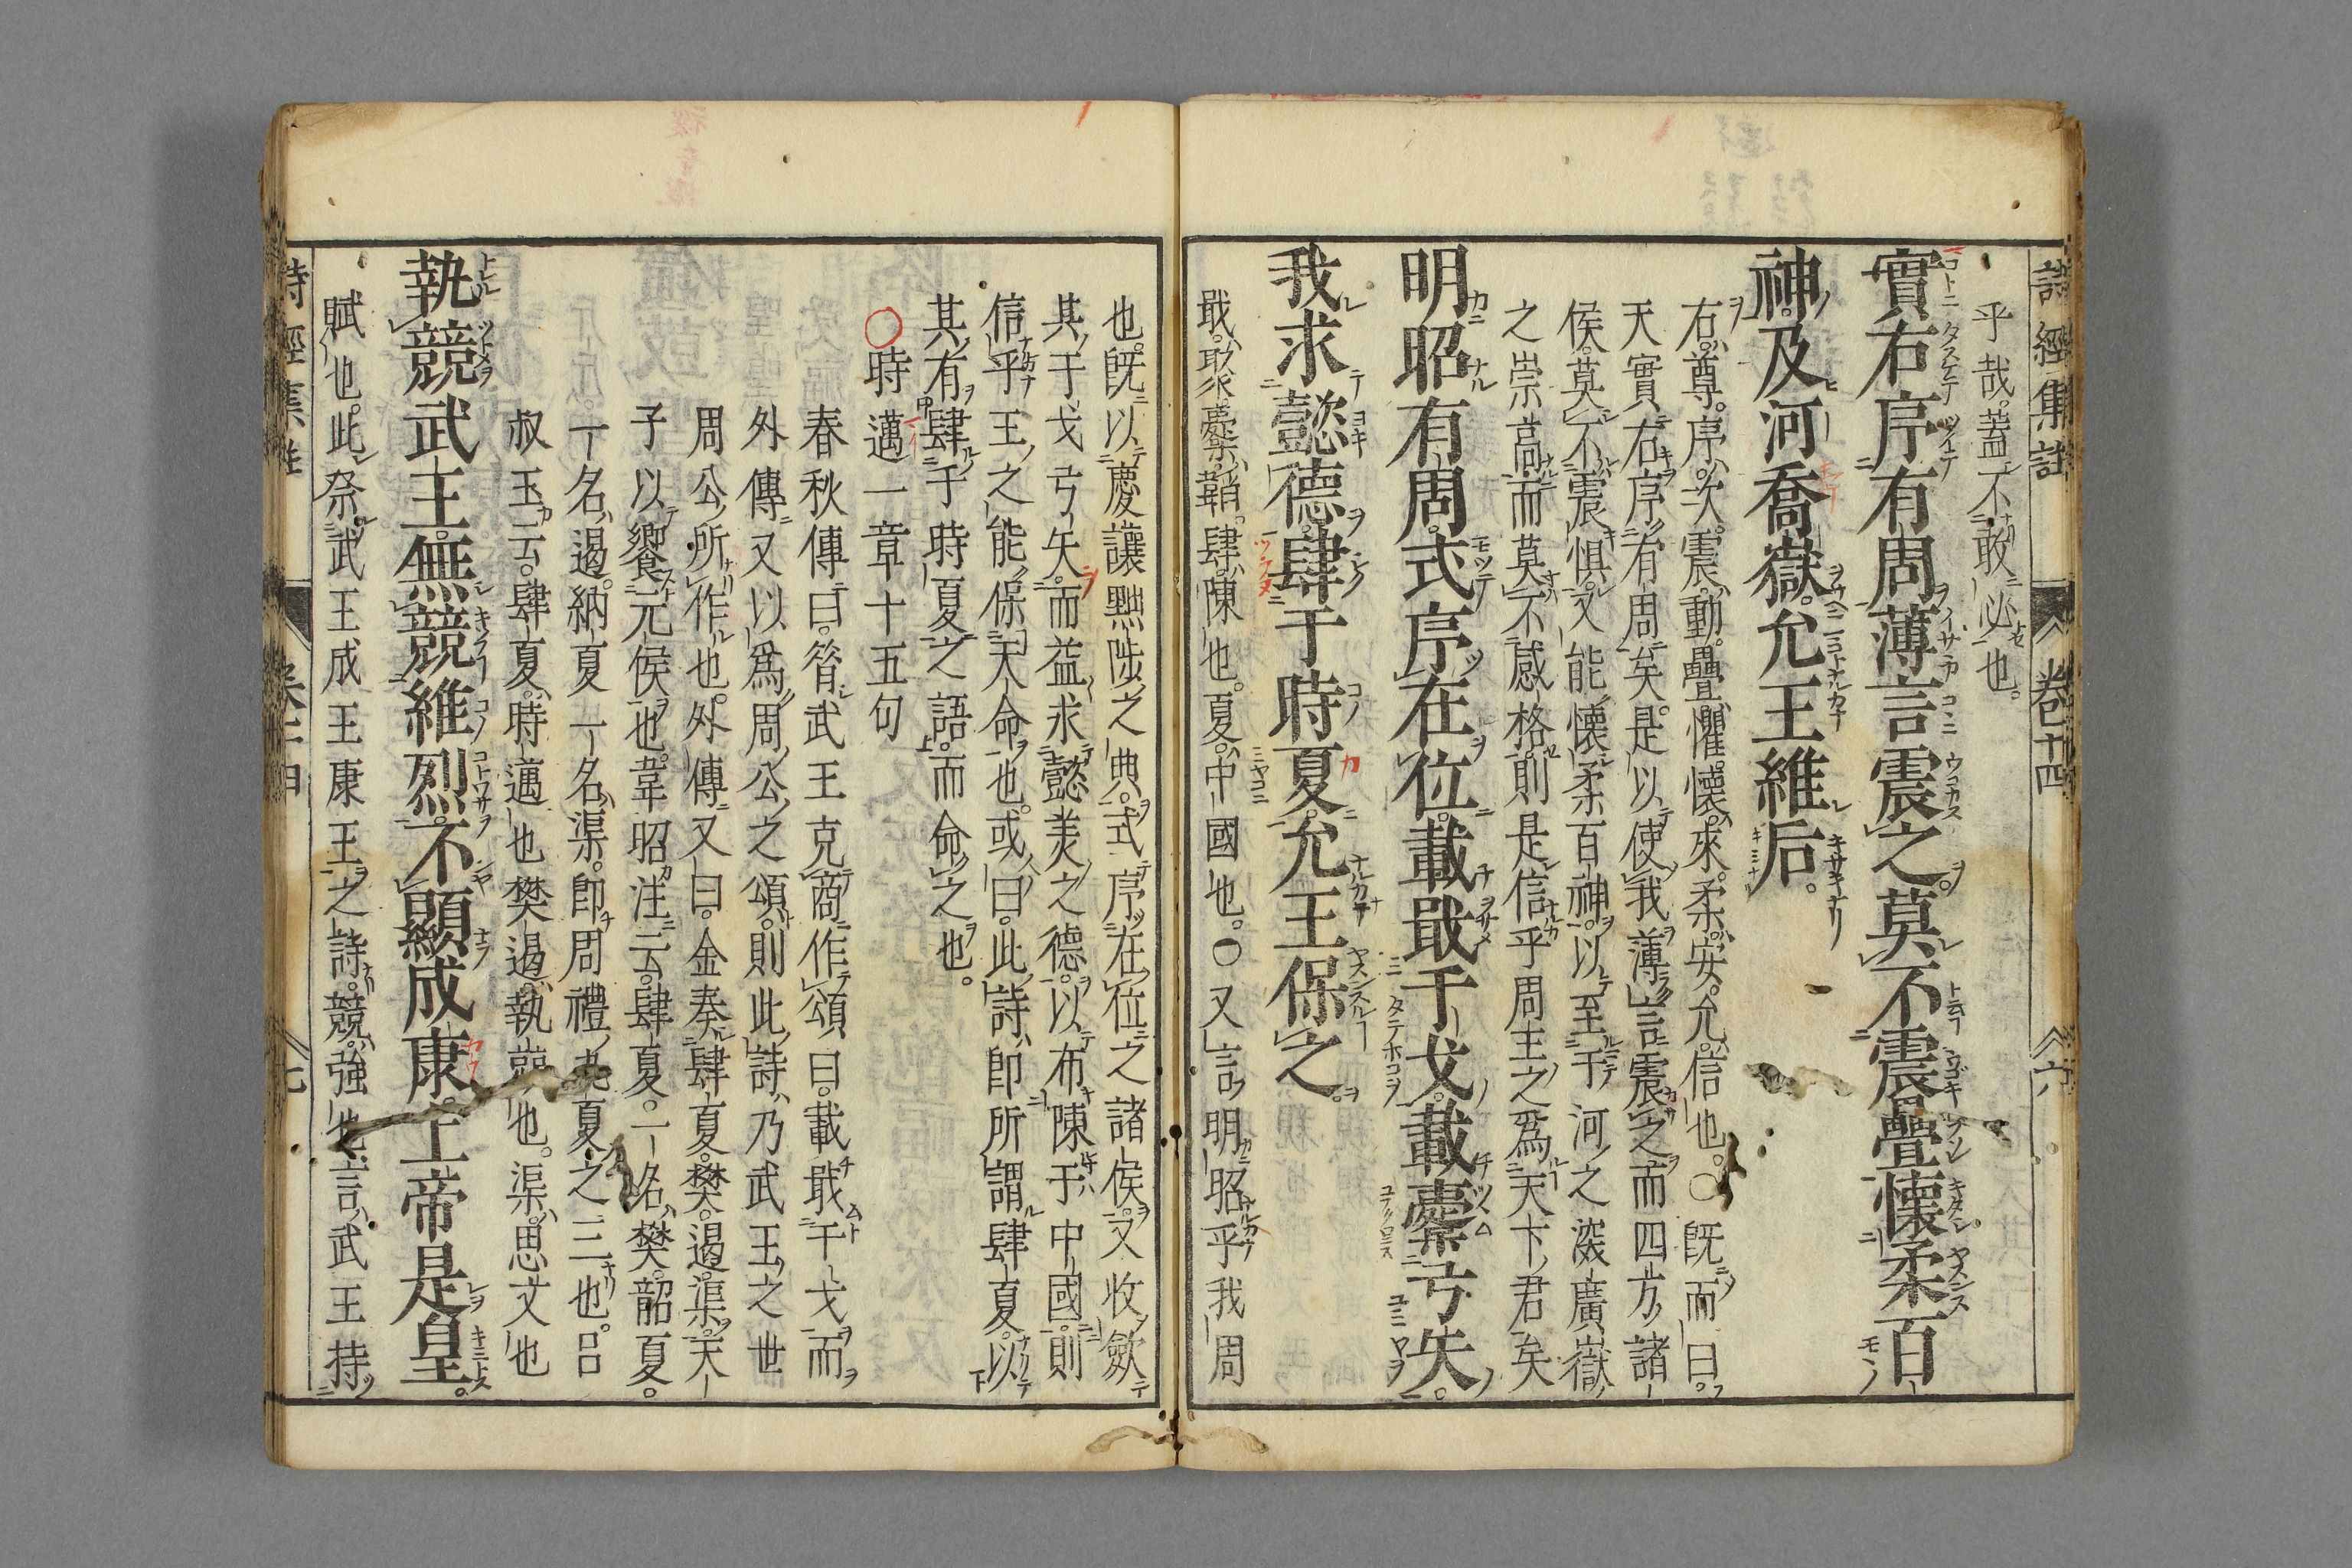 詩經集註 卷十四 六
乎哉蓋不敢必也。
實右序有周薄言震之。莫不震疊懷柔百
神。及河喬嶽。允王維后。
右。尊。序。次。震。動。疊。懼。懷。來。柔。安。允。信也。○既而曰。
天實右序有周矣。是以使我薄言震之而四方諸
侯。莫不震懼。又能懷柔百神。以至于河之深廣嶽
之崇高。而莫不感格。則是信乎周王之爲天下君矣
明昭有周。式序在位。載戢干戈。載櫜弓矢。
我求懿德。肆于時夏。允王保之。
戢。聚。櫜。韜。肆。陳也。夏。中國也。○又言明昭乎我周
也。既以慶讓黜陟之典。式序在位之諸侯。又收斂
其干戈弓矢。而益求懿美之德。以布陳于中國。則
信乎王之能保天命也。或曰。此詩即所謂肆夏。以
其有肆于時夏之語。而命之也。
○時邁一章十五句
春秋傳曰。昝武王克商作頌曰。載戢干戈而
外傳又以爲周公之頌。則此詩乃武王之世
周公所作也。外傳又曰。金奏肆夏。樊。遏。渠。天
子以饗元侯也。韋昭注云。肆夏。一名樊。韶夏。
一名遏。納夏一名渠。即周禮九夏之三也。呂
叔玉云。肆夏。時邁也樊遏。執競也。渠。思文也
執競武王。無競維烈。不顯成康。上帝是皇。
賦也。此祭武王成王康王之詩。競。強也。言武王持
詩經集註